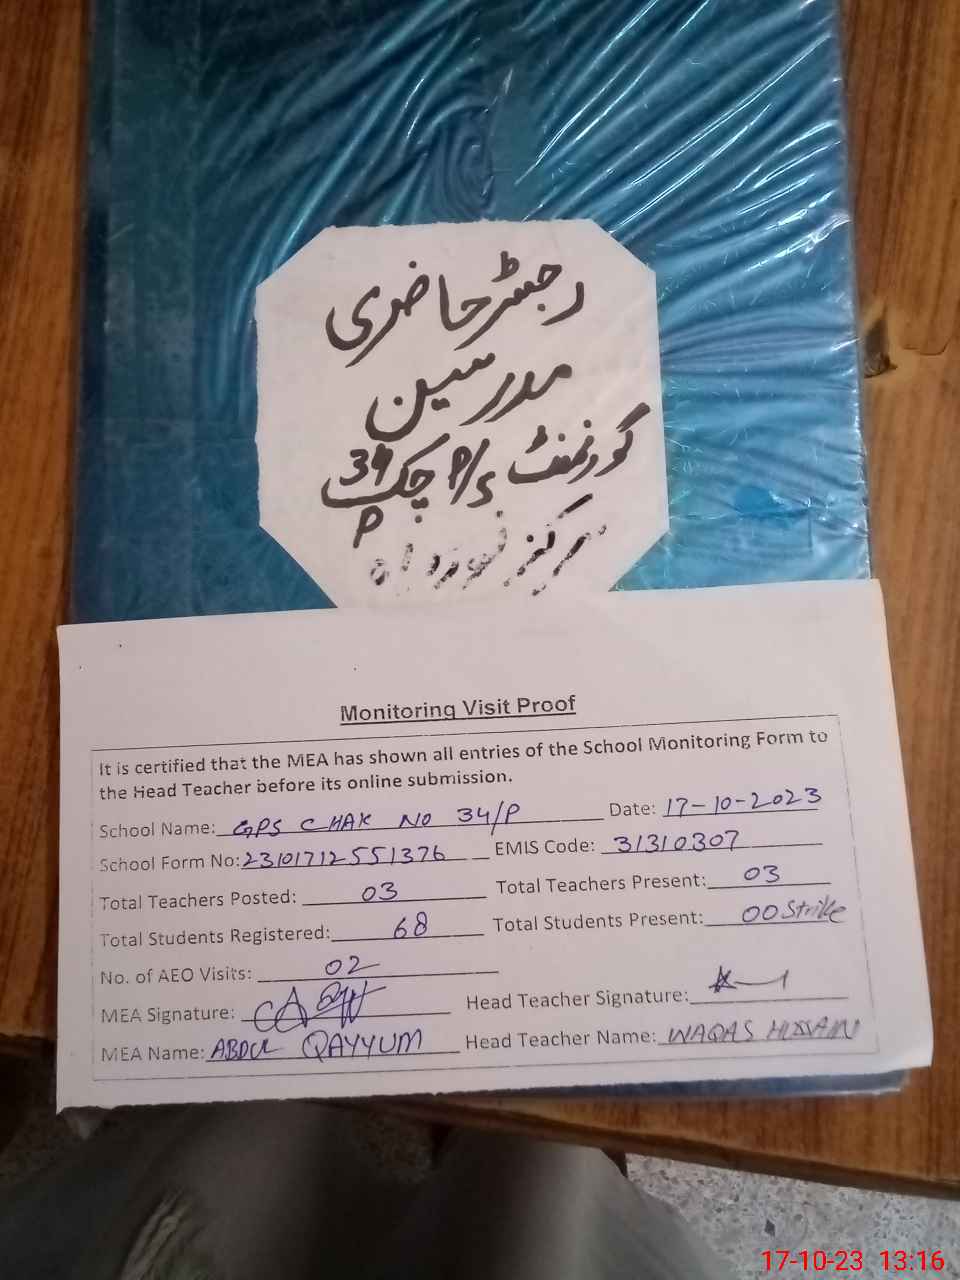 رجسٹر حاضری
مدرسین
گورنمنٹ P/S چک 34
P
مرکز
Monitoring Visit Proof
It is certified that the MEA has shown all entries of the School Monitoring Form to
the Head Teacher before its online submission.
School Name: GPS CHAK NO 34/P Date: 17-10-2023
School Form No: 23101712551376 EMIS Code: 31310307
Total Teachers Posted: 03 Total Teachers Present: 03
Total Students Registered: 68 Total Students Present: 00 Strike
No. of AEO Visits: 02
MEA Signature: Head Teacher Signature:
MEA Name: ABDUL QAYYUM Head Teacher Name: WAQAS HUSSAIN
17-10-23 13:16